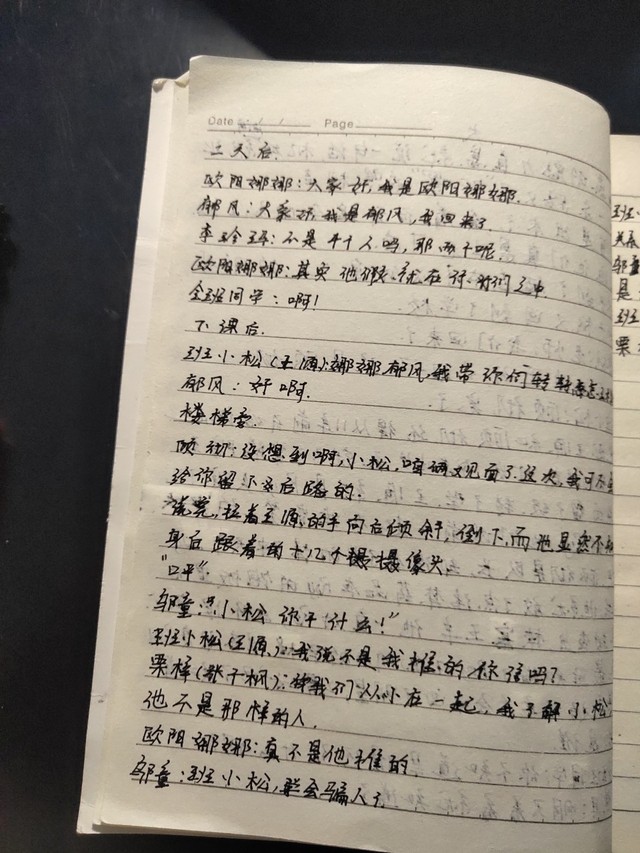 Date Page
三天后
欧阳娜娜：大家好，我是欧阳娜娜.
郁风：大家好，我是郁风，我回来了
李玲玲：不是4个人吗，那两个呢.
欧阳娜娜：其实他们就在 我们之中
全班同学：啊！
下课后.
班小松（王源）：娜娜郁风，我带你们转转
郁风：好啊.
楼梯旁.
顾彻：没想到啊，小松，咱俩又见面了.这次，我可不
给你留下 后路的.
说完，拉着王源的手向后倾斜，倒下，而他显然不
身后跟着的十几个摄像头.
"口平".
邬童："小松你干什么！"
班小松（王源）：我说不是我推的你信吗？
栗梓（张子枫）：我们从小在一起，我了解小松
他不是那样的人.
欧阳娜娜：真不是他推的
邬童：班小松，学会骗人了
班
关系
邬童
是
班
栗